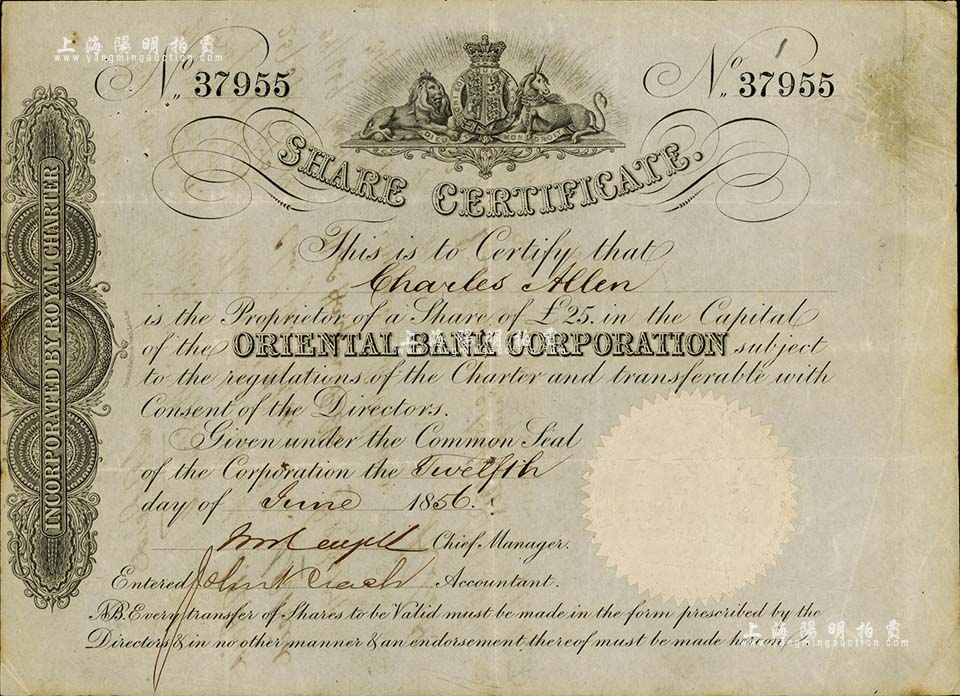 上海陽明拍賣
www.yangmingauction.com
No 37955
No 37955
SHARE CERTIFICATE.
This is to Certify that
Charles Allen
is the Proprietor of a Share of £25. in the Capital
of the ORIENTAL BANK CORPORATION subject
to the regulations of the Charter and transferable with
Consent of the Directors.
Given under the Common Seal
of the Corporation the Twelfth
day of June 1856.
Chief Manager.
Entered John Accountant.
NB. Every transfer of Shares to be Valid must be made in the form prescribed by the
Directors & in no other manner & an endorsement thereof must be made hereon.
INCORPORATED BY ROYAL CHARTER
上海陽明拍賣
www.yangmingauction.com
上海陽明拍賣
www.yangmingauction.com